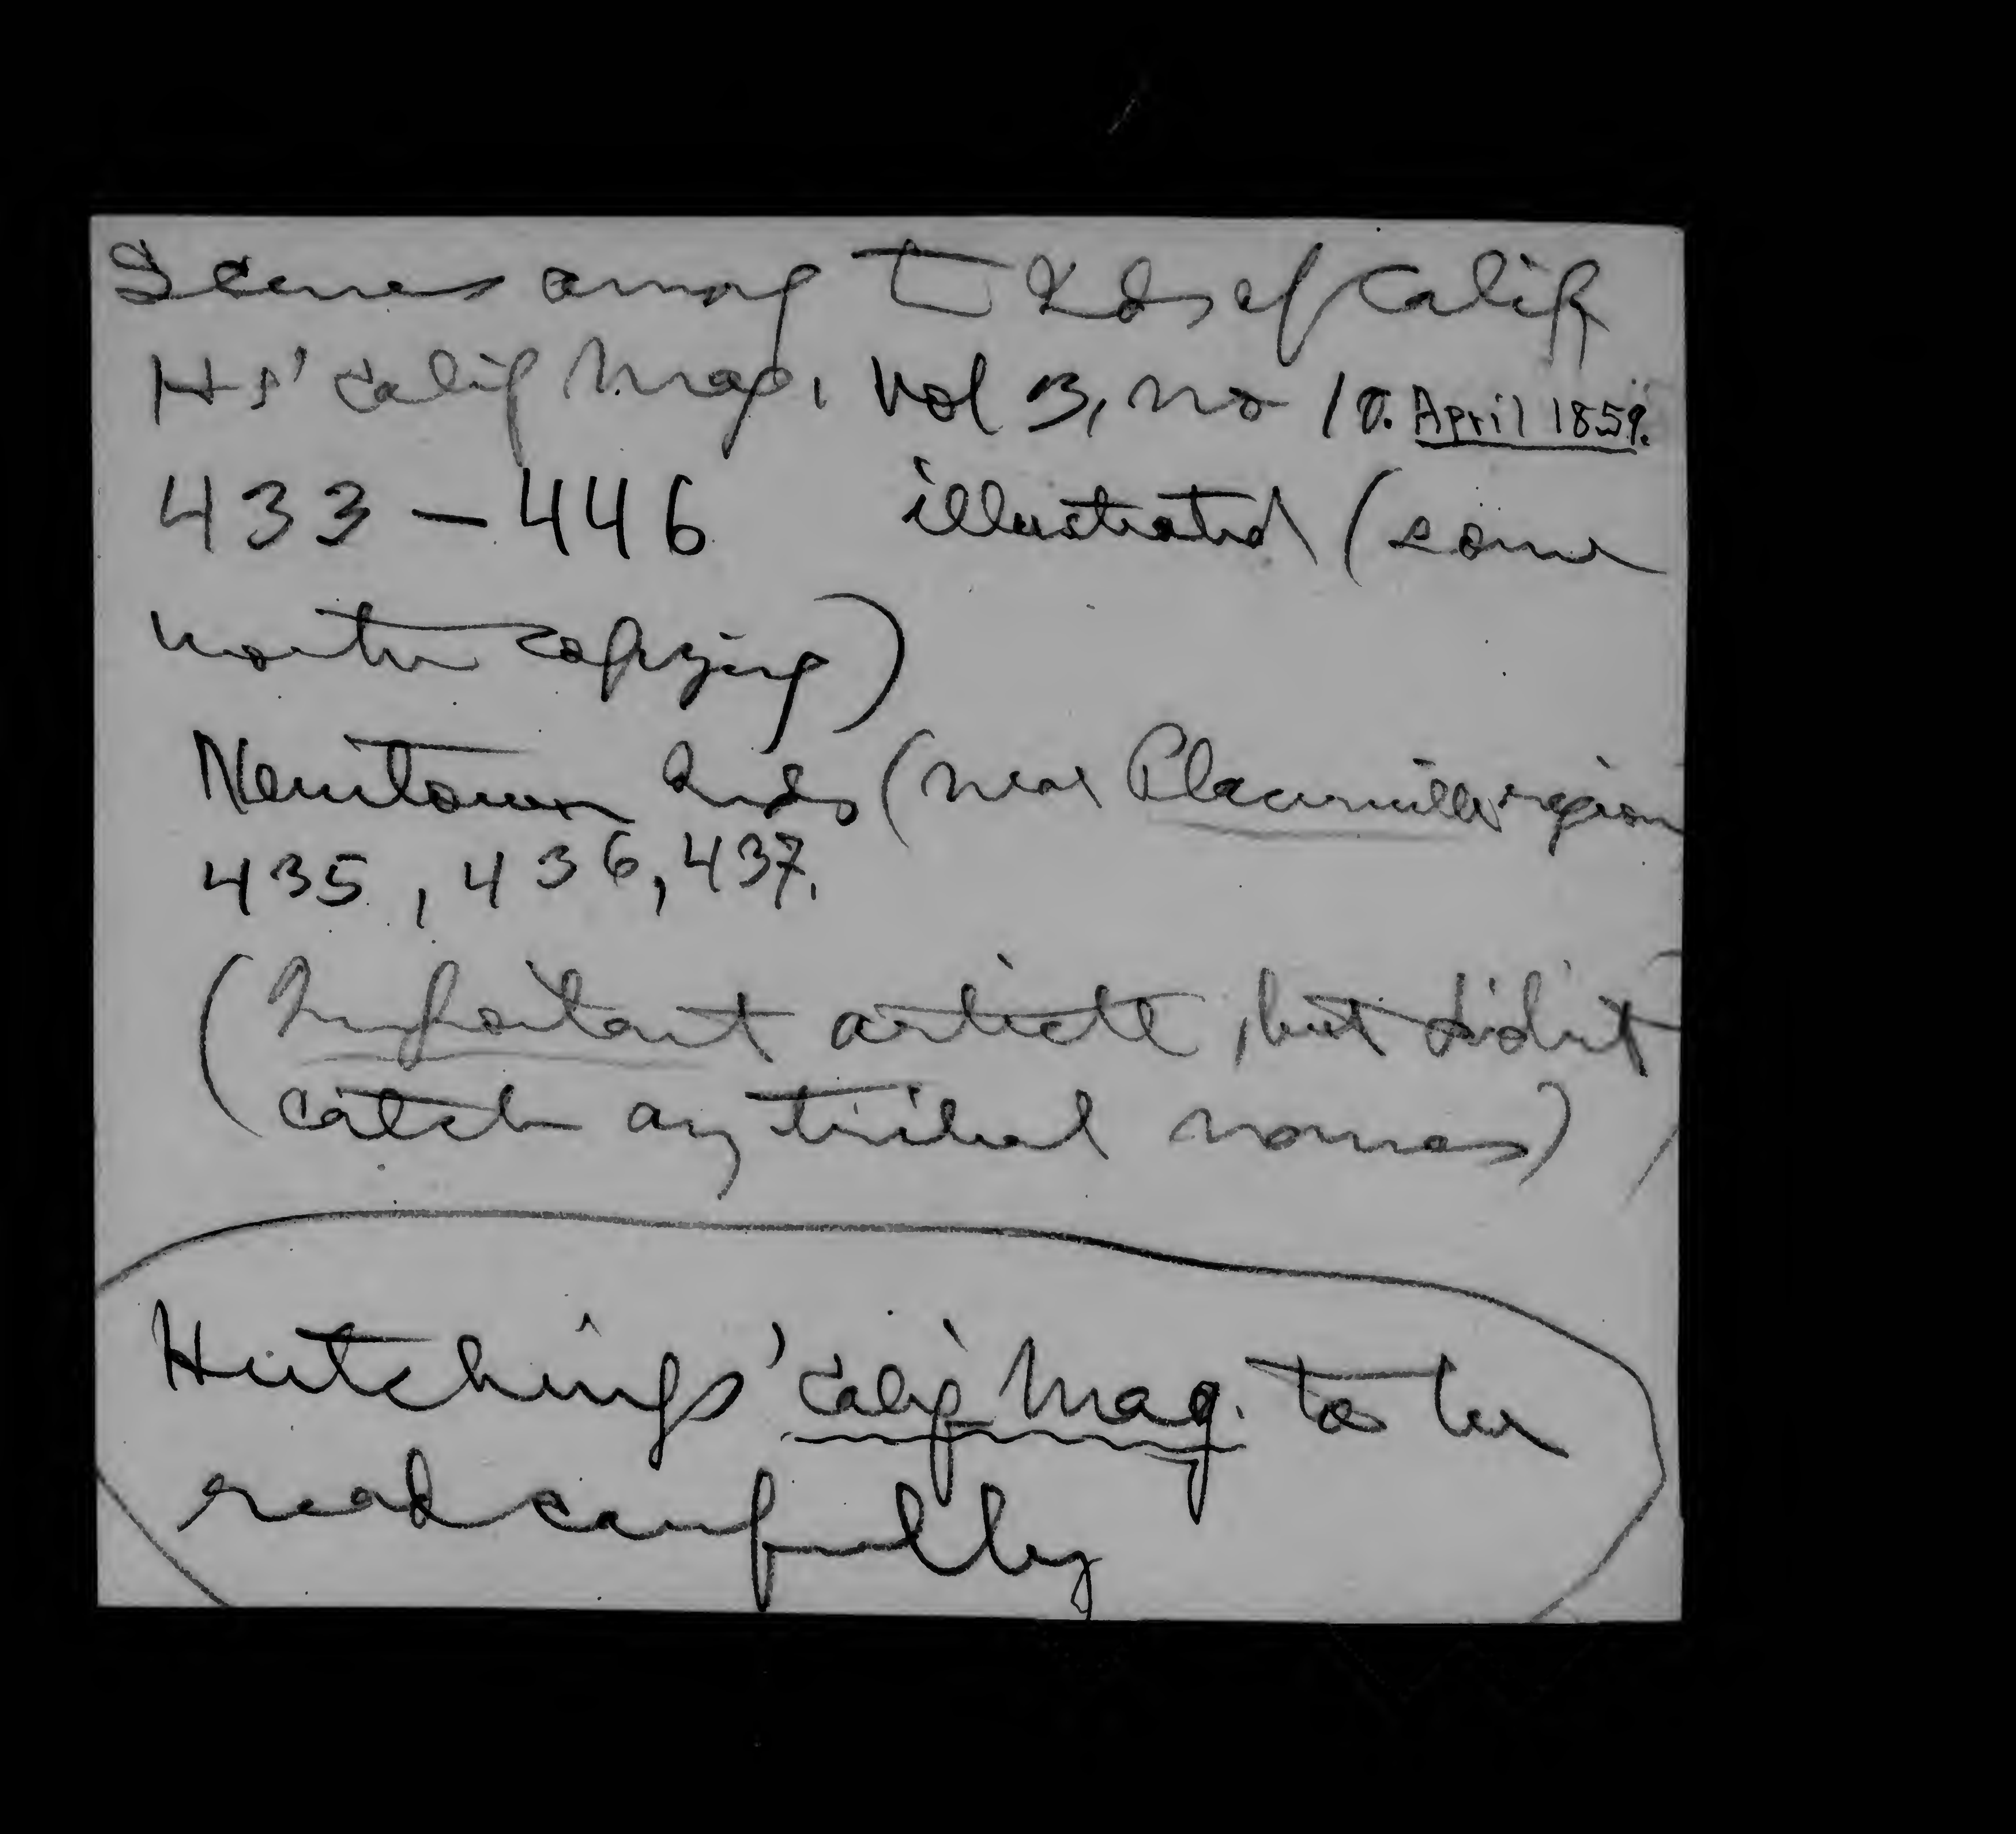 Scenes among t Inds of Calif
Hs' Calif Mag, Vol 3, no 10. April 1859.
433 — 446 illustrated (some
worth copying)
Newtown Inds (near Placerville region
435, 436, 437.
(Important article, but didn't
catch any tribal names)
Hutchings' Calif Mag. to be
read carefully